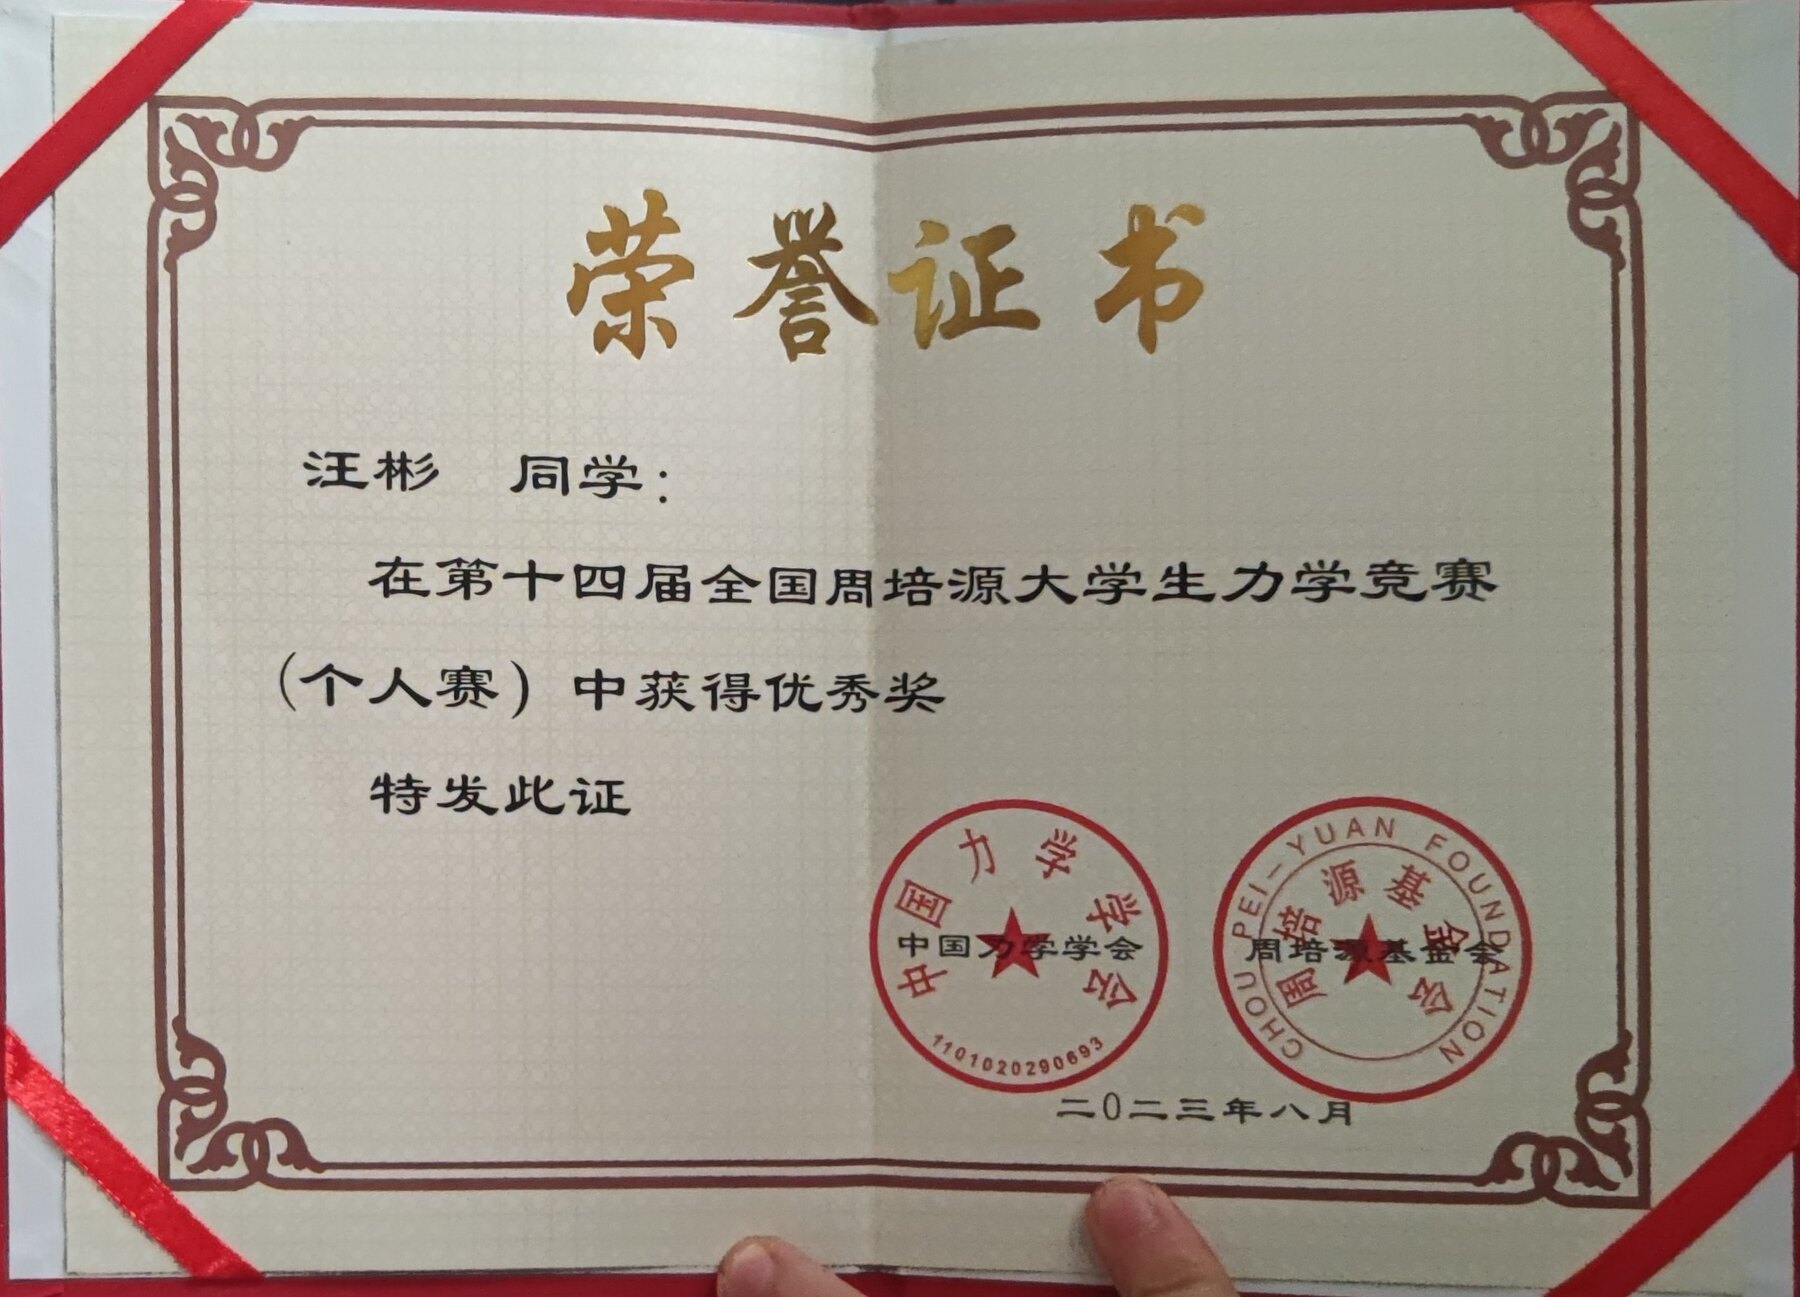 荣誉证书
汪彬 同学：
在第十四届全国周培源大学生力学竞赛
（个人赛）中获得优秀奖
特发此证
中国力学学会
中国力学学会
1101020290693
CHOU PEI-YUAN FOUNDATION
周培源基金会
周培源基金会
二0二三年八月